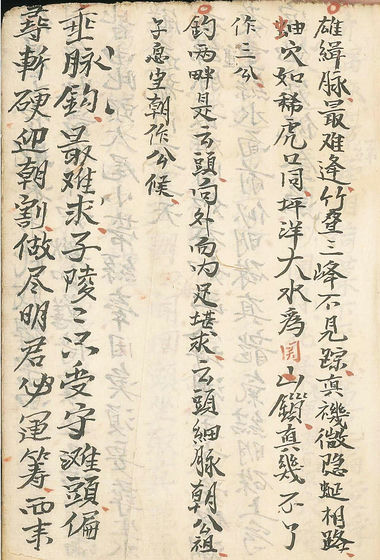 雄緝脉最难逢竹叠三峰不見踪真機微隐蜓相路
蚰穴如稀虎口同坪洋大水為関山鎖真幾不了
作三公
鈎两畔是云頭向外而内足堪求云頭細脉朝公祖
子息坐朝作公候
垂脉鈎最难求子陵〻只受守滩頭偏
尋斬硬迎朝割做尽明君運筹而来